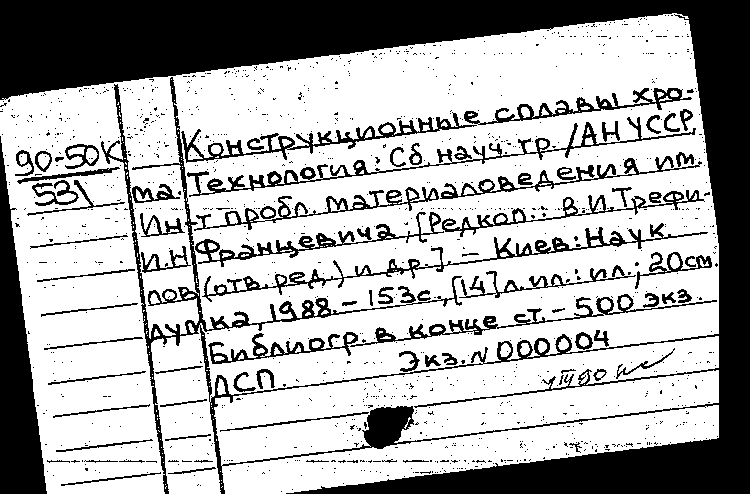 90-50К
531
Конструкционные сплавы хро-
ма. Технология: Сб. науч. тр. /АН УССР,
Ин-т пробл. материаловедения им.
И.Н. Францевича; [Редкол.: В.И. Трефи-
лов (отв. ред.) и др.]. – Киев: Наук.
думка, 1988. – 153с., [14] л. ил.: ил.; 20см.
Библиогр. в конце ст. – 500 экз.
ДСП. Экз. N 000004